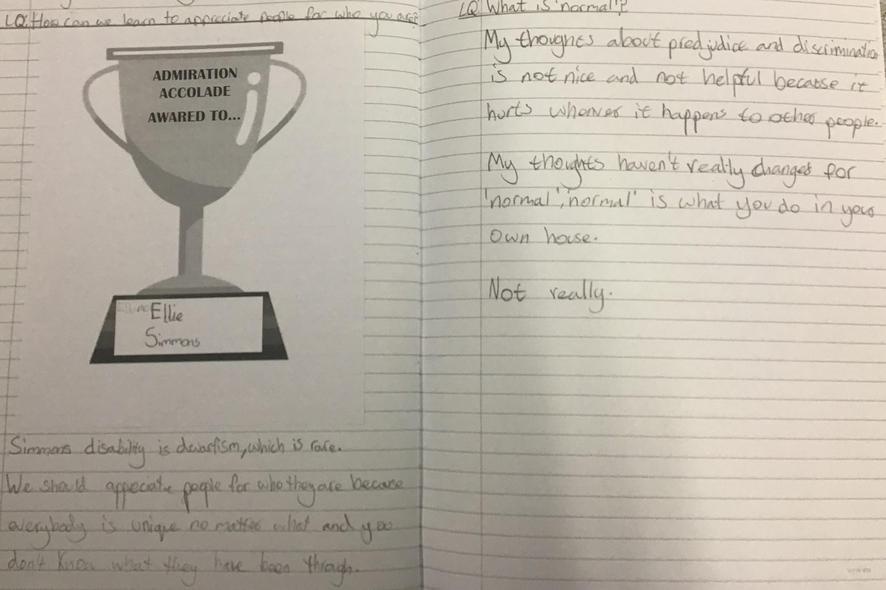 LQ: How can we learn to appreciate people for who you are?
ADMIRATION
ACCOLADE
AWARED TO...
Ellie
Simmons
Simmons disability is dwarfism, which is rare.
We should appeciate people for who they are because
everybody is unique no matter what and you
don't know what they have been through.
LQ: What is 'normal'?
My thoughts about predjudice and discrimination
is not nice and not helpful because it
hurts whoever it happens to other people.
My thoughts haven't really changed for
'normal', 'normal' is what you do in your
own house.
Not really.